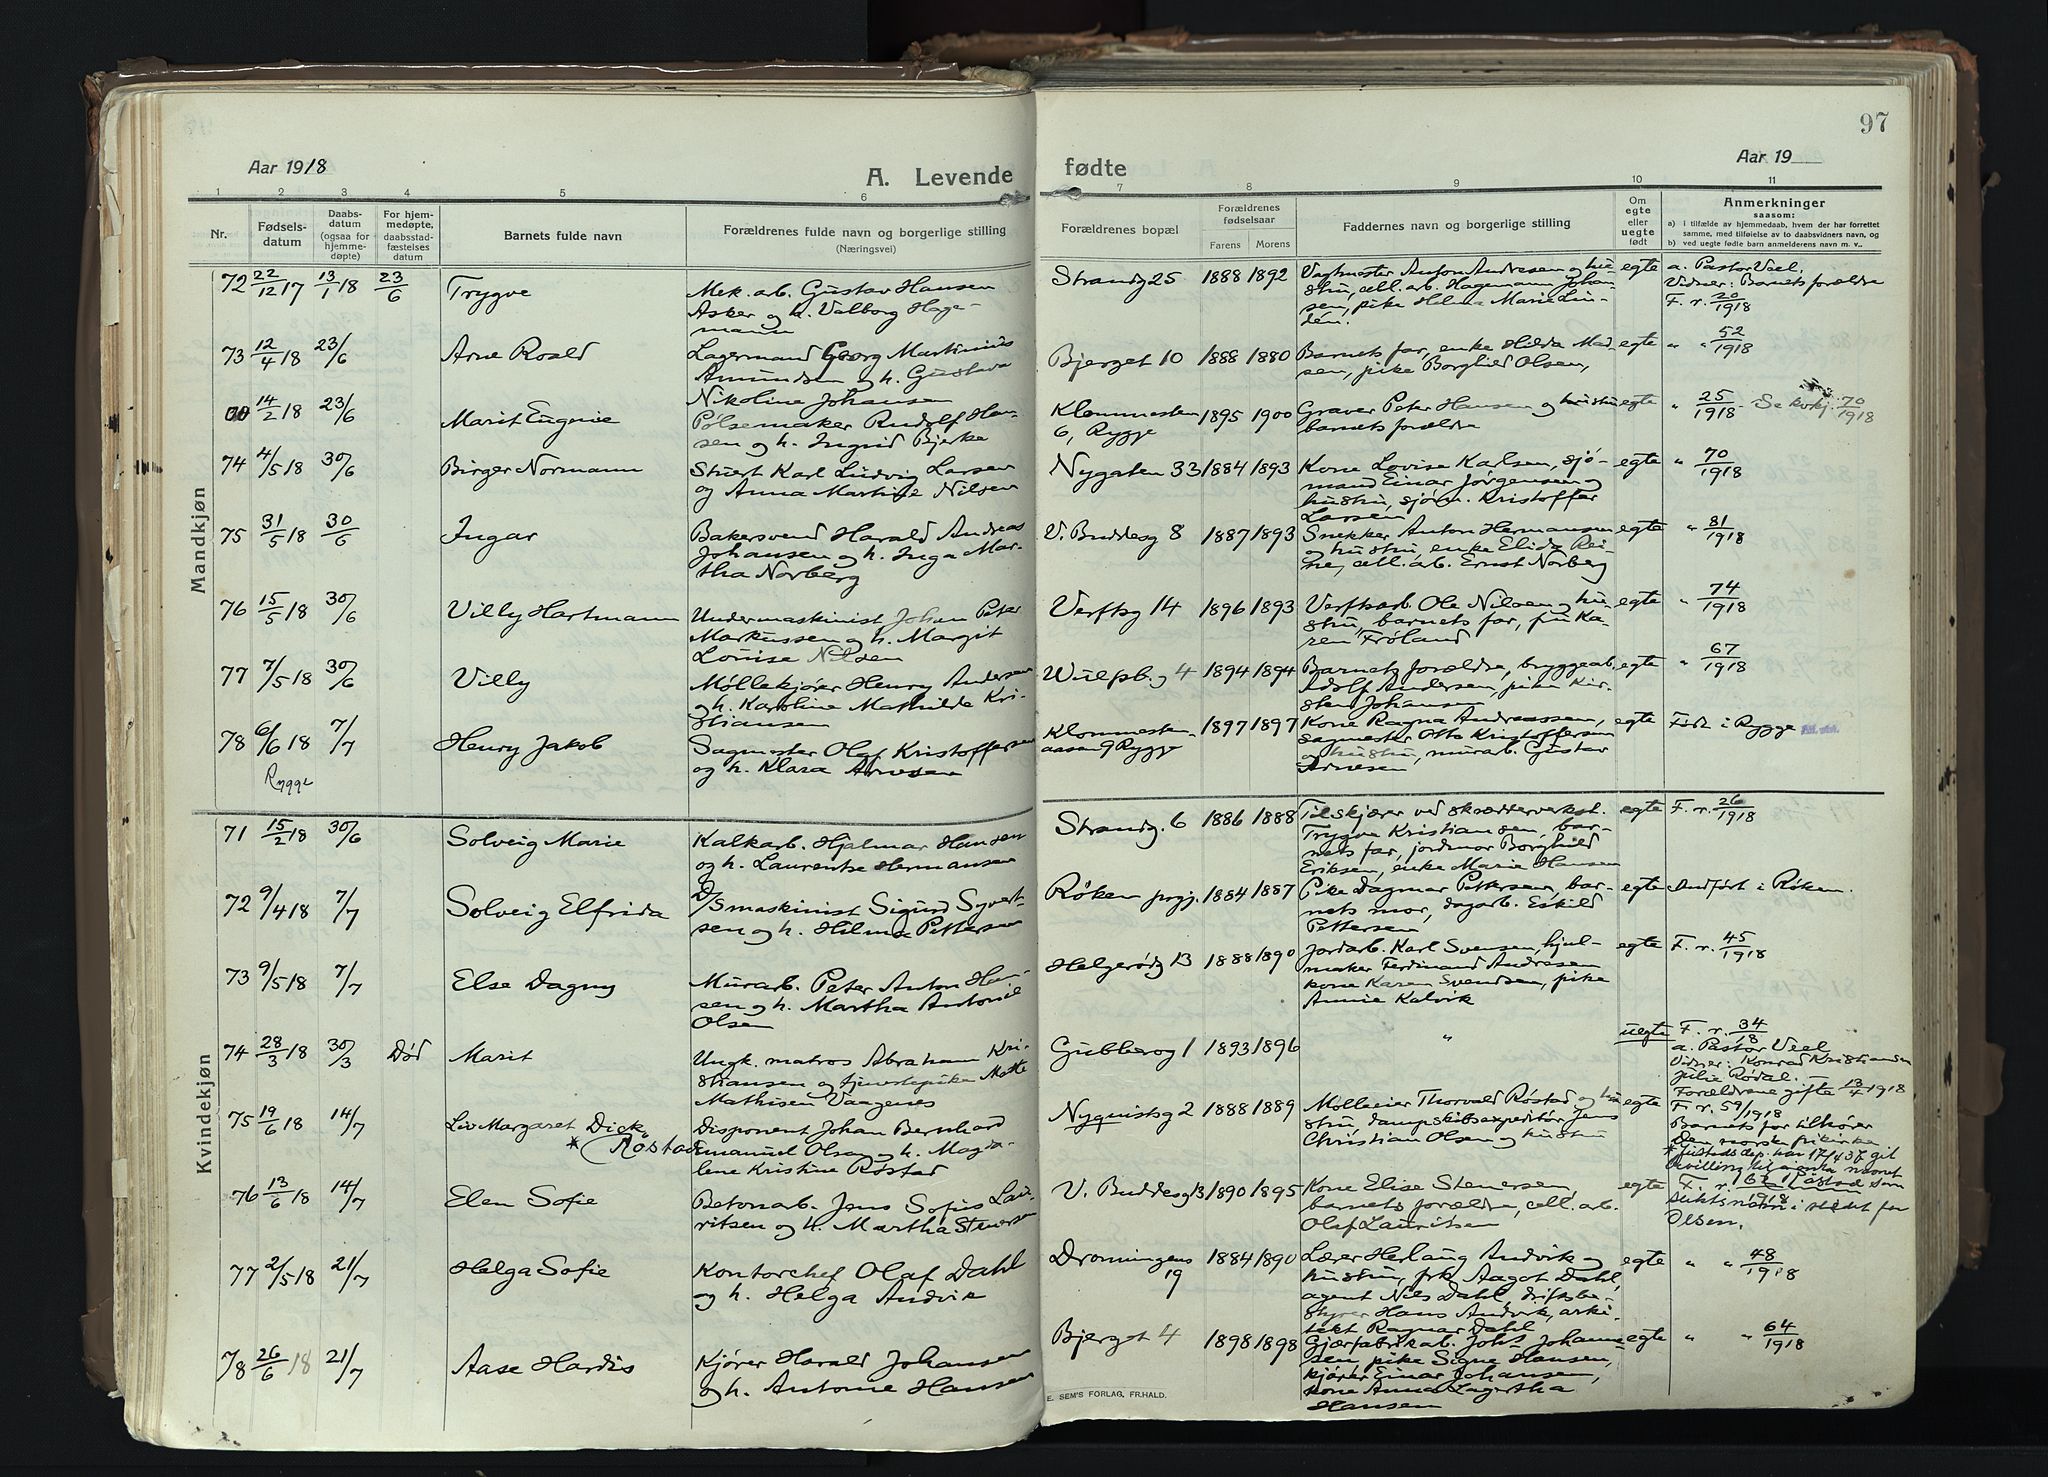 97
Aar 1918
A. Levende
fødte
Aar 19
1 2 3 4 5 6 7 8 9 10 11
Nr.
Fødselsdatum
Daabsdatum (ogsaa for hjemmedøpte)
For hjemmedøpte, daabsstadfæstelses datum
Barnets fulde navn
Forældrenes fulde navn og borgerlige stilling
(Næringsvei)
Forældrenes bopæl
Forældrenes fødselsaar
Farens Morens
Faddernes navn og borgerlige stilling
Om egte eller uegte født
Anmerkninger
saasom:
a) i tilfælde av hjemmedaab, hvem der har forrettet
samme, med tilføielse av to daabsvidners navn, og
b) ved uegte fødte barn anmelderens navn m. v.
Mandkjøn
72 22/12 17 13/1 18 23/6 Trygve
Mek. arb. Gustav Hansen
Asker og h. Valborg Hage-
mann
Strandg 25 1888 1892
Vagtmester Anton Andresen og hu-
stru, cell. arb. Hagemann Johan-
sen, pike Helma Marie Lin-
dén.
egte
a. Pastor Veel.
Vidner: Barnets forældre
F. r. 20/1918
73 12/4 18 23/6 Arne Roald
Lagermand Georg Martinius
Amundsen og h. Gustava
Nikoline Johansen
Bjerget 10 1888 1880
Barnets far, enke Hilda Mad-
sen, pike Borghild Olsen,
egte " " 52/1918
14/2 18 23/6 Marit Eugenie
Pølsemaker Rudolf Han-
sen og h. Ingrid Bjerke
Klommesten
6, Rygge
1895 1900
Graver Peter Hansen og hustru
barnets forældre
egte " 25/1918 - Se kvkj. 70/1918
74 4/5 18 30/6 Birger Normann
Stuert Karl Ludvig Larsen
og Anna Martine Nilsen
Nygaten 33 1884 1893
Kone Lovise Karlsen, sjø-
mand Einar Jørgensen og
hustru, sjøm. Kristoffer
Larsen
egte " 70/1918
75 31/5 18 30/6 Ingar
Bakersvend Harald Andreas
Johansen og h. Inga Mar-
tha Norberg
V. Buddesg 8 1887 1893
Snekker Anton Hermansen
og hustru, enke Elida Rei-
ne, cell. arb. Ernst Norberg
egte " 81/1918
76 15/5 18 30/6 Villy Hartmann
Undermaskinist Johan Peter
Markussen og h. Margit
Louise Nilsen
Verftsg 14 1896 1893
Verftsarb. Ole Nilsen og hu-
stru, barnets far, frk Ka-
ren Frøland
egte " 74/1918
77 7/5 18 30/6 Villy
Møllekjører Henry Andersen
og h. Karoline Mathilde Kri-
stiansen
Wulfsb.g 4 1894 1894
Barnets forældre, bryggeab.
Adolf Andersen, pike Kir-
sten Johansen
egte " 67/1918
78 6/6 18 7/7 Henry Jakob
Rygge
Sagmester Olaf Kristoffersen
og h. Klara Arnesen
Klommesten-
aasen 9 Rygge
1897 1897
Kone Ragna Andreassen,
sagmester Otto Kristoffersen
og hustru, murarb. Gustav
Arnesen
egte Født i Rygge
Kvindekjøn
71 15/2 18 30/6 Solveig Marie
Kalkarb. Hjalmar Hansen
og h. Laurentse Hermansen
Strandg. 6 1886 1888
Tilskjærer ved skrædderverkst.
Trygve Kristiansen, bar-
nets far, jordmor Borghild
Eriksen, enke Marie Hansen
egte F. r. 26/1918
72 9/4 18 7/7 Solveig Elfrida
D/S maskinist Sigurd Syvert-
sen og h. Hilma Pettersen
Røken prgj. 1884 1887
Pike Dagmar Pettersen, bar-
nets mor, dagarb. Eskild
Pettersen
egte Indført i Røken.
73 9/5 18 7/7 Else Dagny
Murarb. Peter Anton Han-
sen og h. Martha Antonie
Olsen
Helgerødg 13 1888 1890
Jordarb. Karl Svensen, hjul-
maker Ferdinand Andresen
kone Karen Svendsen, pike
Annie Kalvik
egte F. r. 45/1918
74 28/3 18 30/3 Død Marit
Ungk. matros Abraham Kri-
stiansen og tjenestepike Mette
Mathisen Vaagenes
Gubberog 1 1893 1896
"
uegte F. r. 34/18
a. Pastor Veel
Vidner: Konrad Kristiansen
Julie Rødal. -
Forældrene gifte 13/4 1918
75 19/6 18 14/7 Liv Margaret Dick
* (Røstad
Disponent Johan Bernhard
Emanuel Olsen og h. Magda-
lene Kristine Røstad
Nyquistsg 2 1888 1889
Mølleeier Thorvald Røstad og hu-
stru, dampskibsexpeditør Jens
Christian Olsen og hustru
egte F. r. 59/1918
Barnets far tilhører
Den norske frikirke
* Justisdep. har 17/4 37 git
bevilling til
navnet
Røstad som
slektsnavn i stedet for
Olsen.
76 13/6 18 14/7 Elen Sofie
Betonarb. Jens Sofus Lau-
ritsen og h. Martha Stenersen
V. Buddesg 13 1890 1895
Kone Elise Stenersen,
barnets forældre, cell. arb.
Olaf Lauritsen
egte F. r. 62/1918
77 2/5 18 21/7 Helga Sofie
Kontorchef Olaf Dahl
og h. Helga Andvik
Dronningens
19
1884 1890
Lærer Herlaug Andvik og
hustru, frk Aagot Dahl,
agent Nils Dahl, driftsbe-
styrer Hans Andvik, arki-
tekt Ragnar Dahl
egte " " 48/1918
78 26/6 18 21/7 Aase Hardis
Kjører Harald Johansen
og h. Antonie Hansen
Bjerget 4 1898 1898
Gjærfabrikarb. Johs Johanne-
sen, pike Signe Hansen,
kjører Einar Johansen,
kone Anna Lagertha
Hansen
egte " " 64/1918
E. SEM'S FORLAG, FR.HALD.